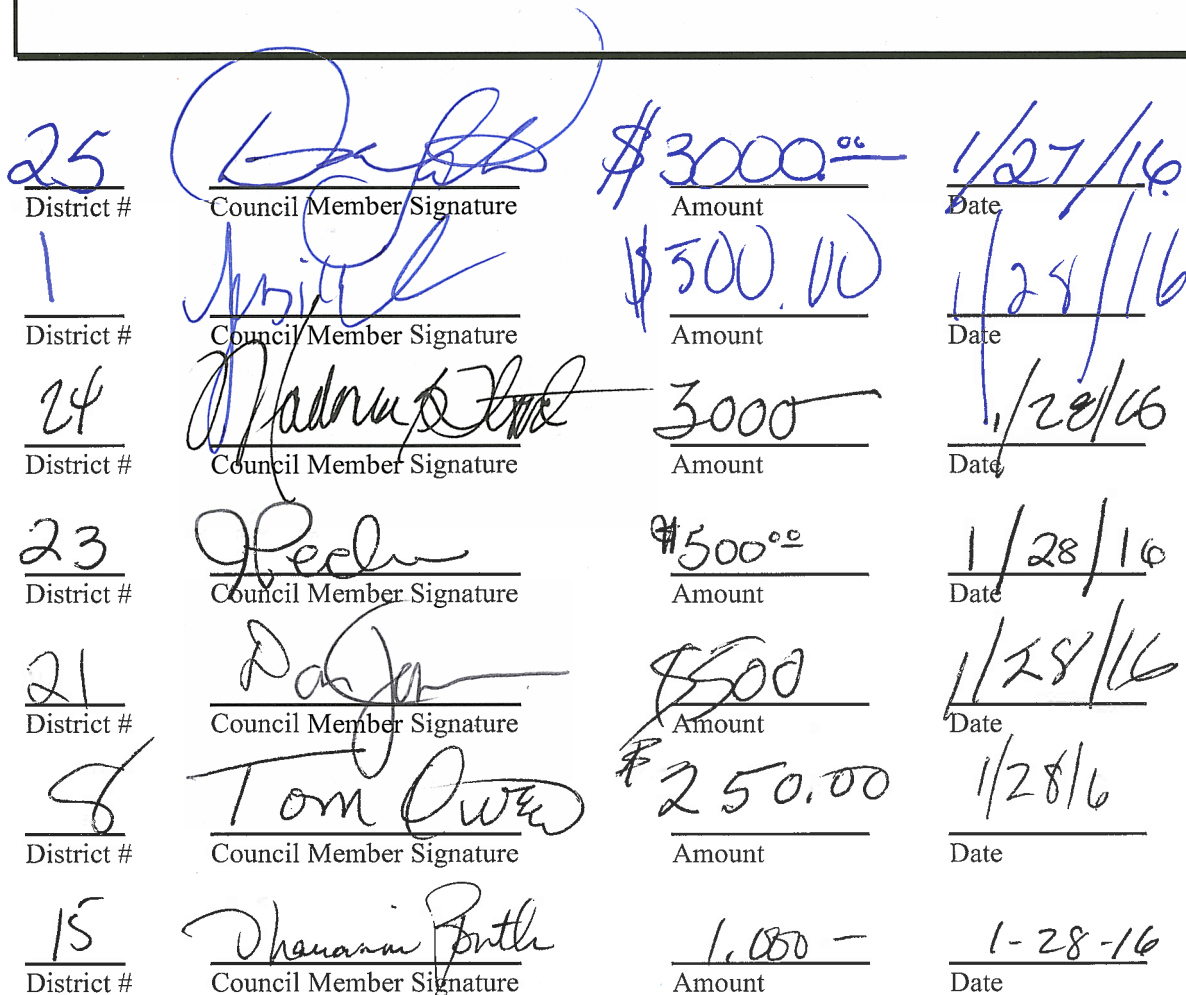 25 $3000.00 1/27/16
District # Council Member Signature Amount Date
1 $500.00 1/28/16
District # Council Member Signature Amount Date
24 Madonna Flood 3000 1/28/16
District # Council Member Signature Amount Date
23 $500.00 1/28/16
District # Council Member Signature Amount Date
21 Dan $500 1/28/16
District # Council Member Signature Amount Date
8 Tom Owen $250.00 1/28/6
District # Council Member Signature Amount Date
15 1.000 - 1-28-16
District # Council Member Signature Amount Date